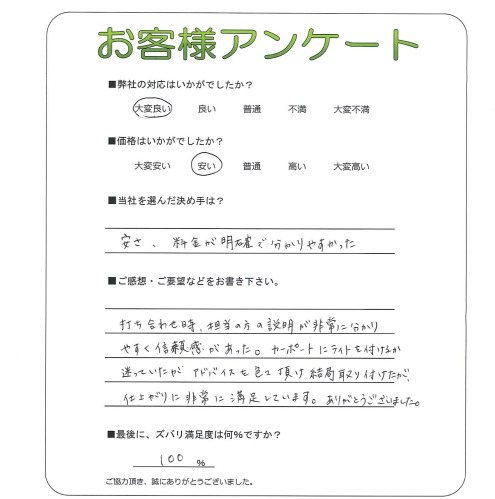 お客様アンケート
■弊社の対応はいかがでしたか？
大変良い 良い 普通 不満 大変不満
■価格はいかがでしたか？
大変安い 安い 普通 高い 大変高い
■当社を選んだ決め手は？
安さ、料金が明確で分かりやすかった
■ご感想・ご要望などをお書き下さい。
打ち合わせ時、担当の方の説明が非常に分かり
やすく信頼感があった。カーポートにライトを付けるか
迷っていたがアドバイスを色々頂け結局取り付けたが、
仕上がりに非常に満足しています。ありがとうございました。
■最後に、ズバリ満足度は何％ですか？
100 %
ご協力頂き、誠にありがとうございました。